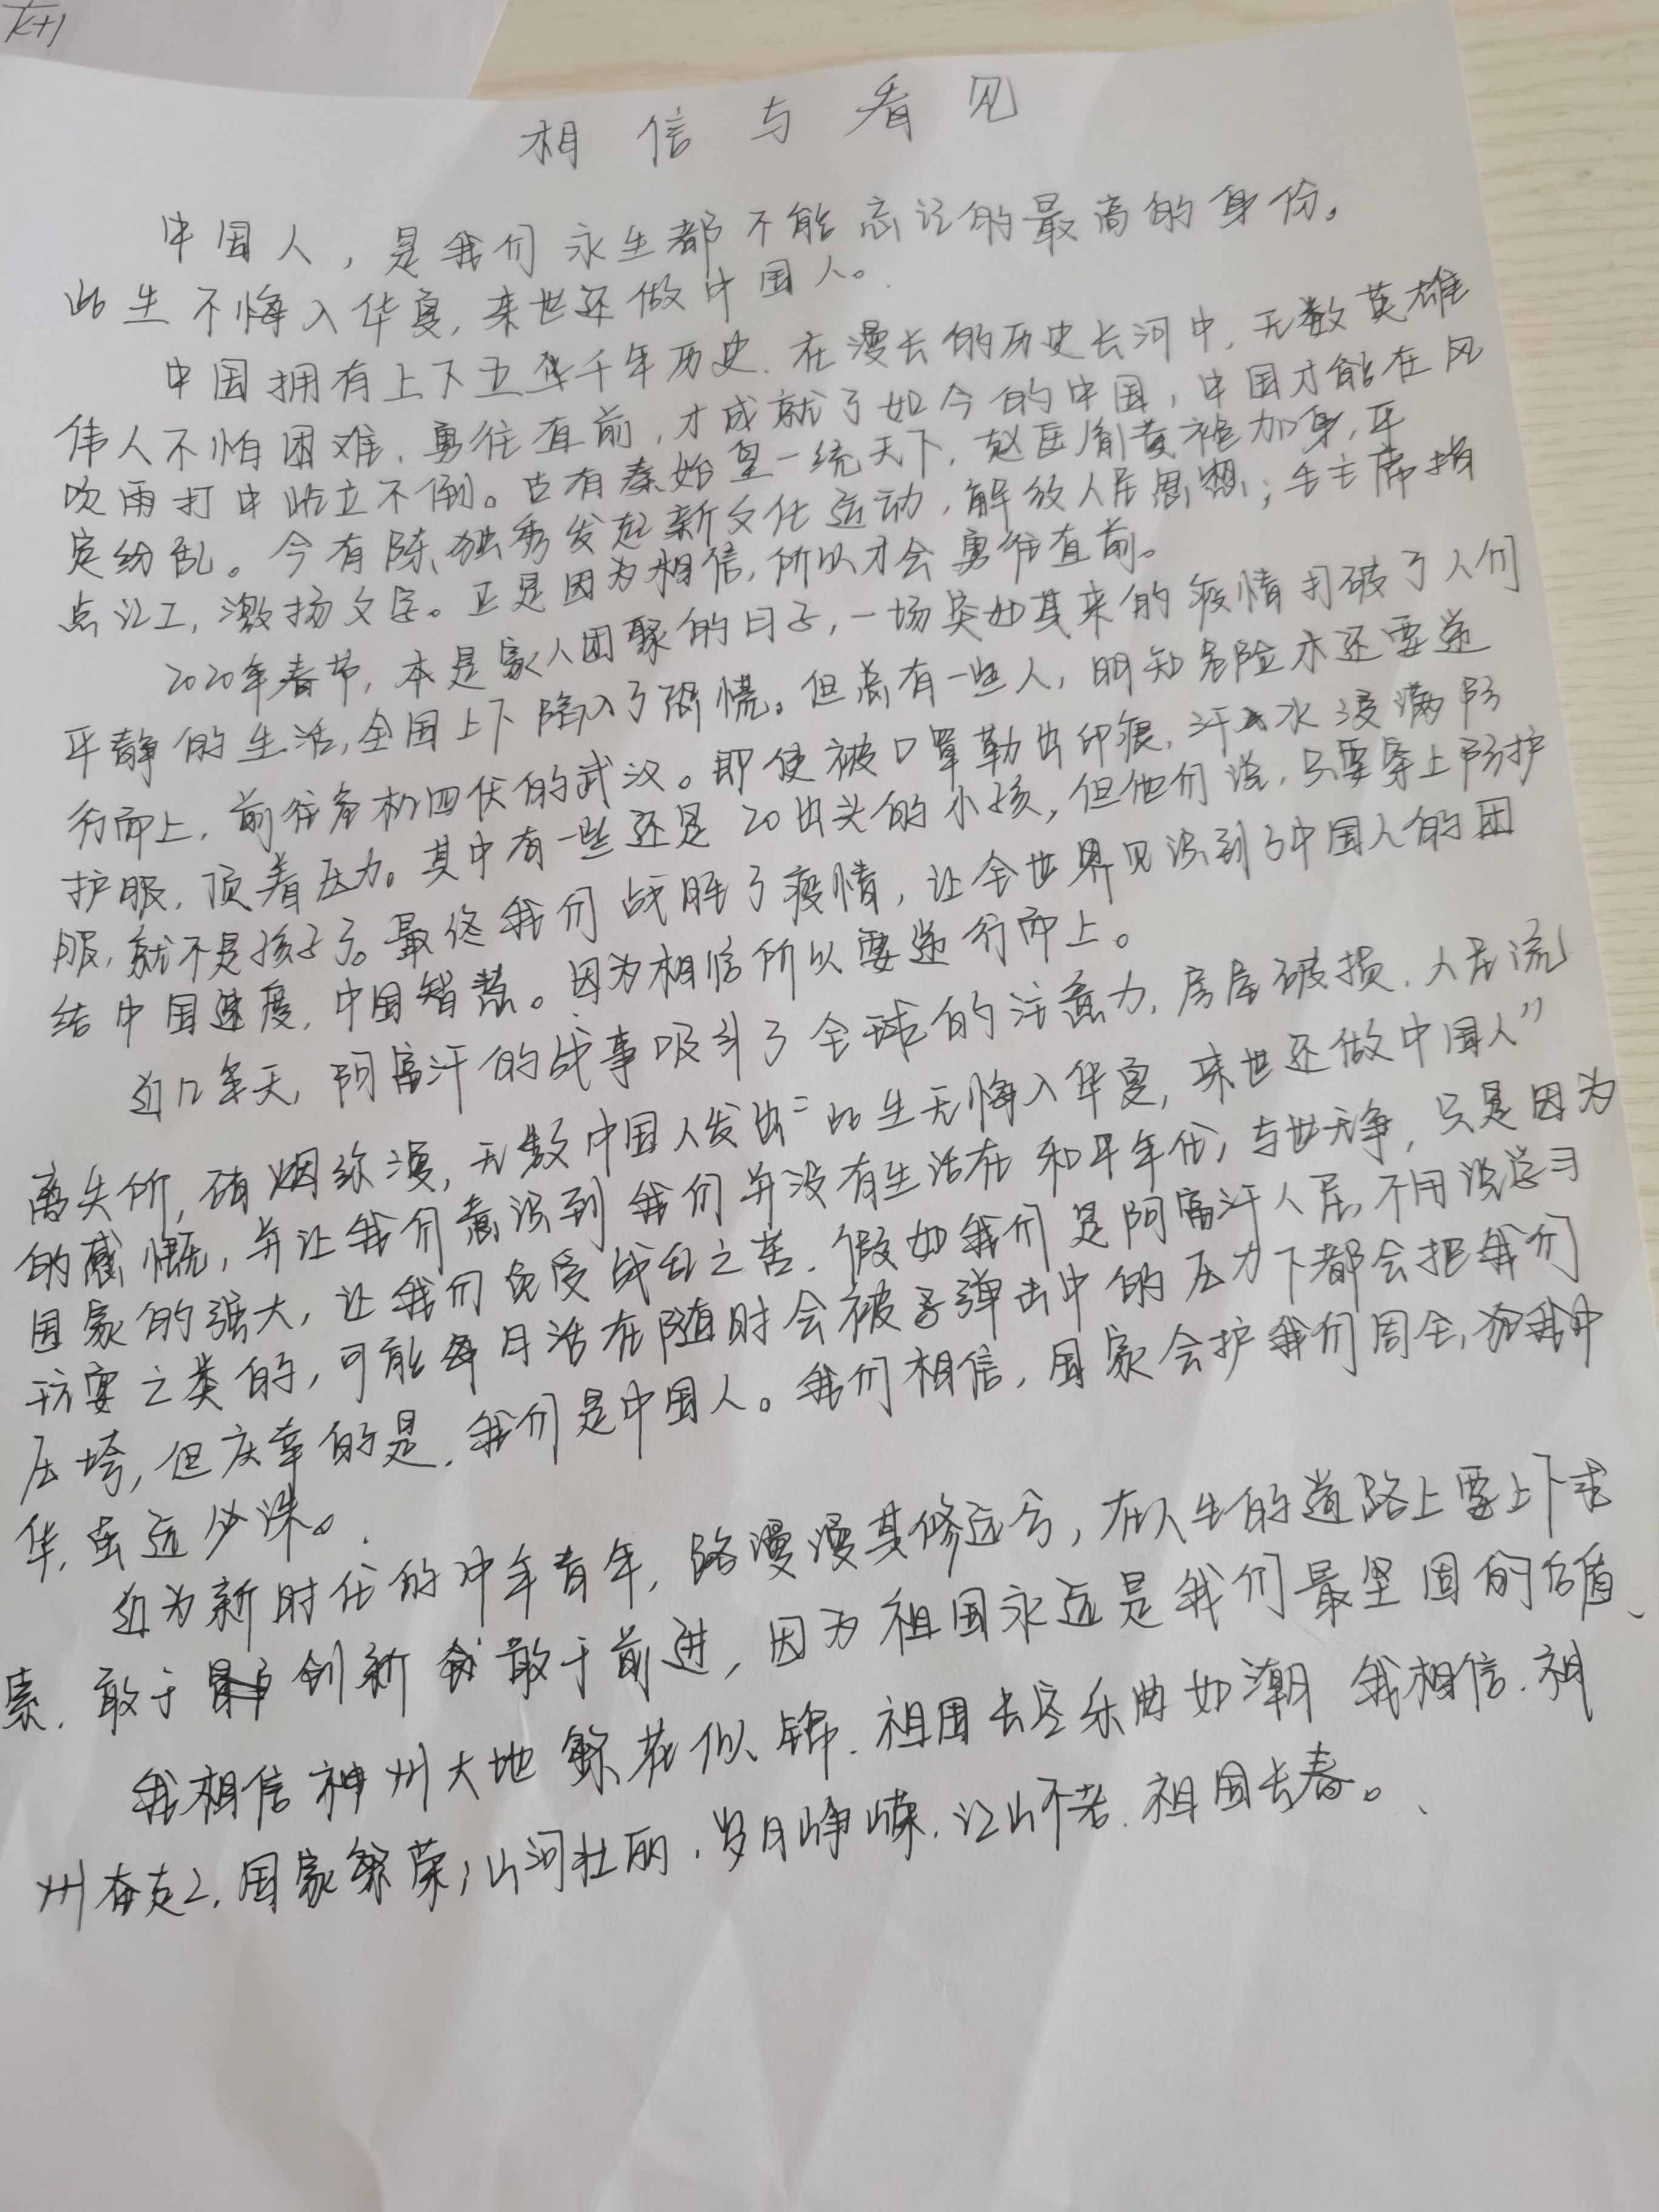 相信与看见
中国人，是我们永生都不能忘记的最高的身份。
此生不悔入华夏，来世还做中国人。
中国拥有上下五千年历史．在漫长的历史长河中，无数英雄
伟人不怕困难、勇往直前，才成就了如今的中国，中国才能在风
吹雨打中屹立不倒。古有秦始皇一统天下，赵匡胤黄袍加身，平
定纷乱。今有陈独秀发起新文化运动，解放人民思想；毛主席指
点江工，激扬文字。正是因为相信，所以才会勇往直前。
2020年春节，本是家人团聚的日子，一场突如其来的疫情打破了人们
平静的生活，全国上下陷入了恐慌。但总有一些人，明知危险亦还要逆
行而上，前往危机四伏的武汉。即使被口罩勒出印痕，汗水浸满防
护服，顶着压力。其中有一些还是20出头的小孩，但他们说，只要穿上防护
服，就不是孩子了。最终我们战胜了疫情，让全世界见识到了中国人的团
结中国速度，中国智慧。因为相信所以要逆行而上。
近几天，阿富汗的战事吸引了全球的注意力，房屋破损，人民流
离失所，硝烟弥漫，无数中国人发出“此生无悔入华夏，来世还做中国人”
的感慨，并让我们意识到我们并没有生活在和平年代，与世无争，只是因为
国家的强大，让我们免受战乱之苦．假如我们是阿富汗人民，不用说学习
玩耍之类的，可能每日活在随时会被子弹击中的压力下都会把我们
压垮，但庆幸的是，我们是中国人。我们相信，国家会护我们周全，犯我中
华，虽远必诛。
迈为新时代的中年青年，路漫漫其修远兮，在人生的道路上要上下求
索．敢于创新敢于前进，因为祖国永远是我们最坚固的后盾、
我相信神州大地繁花似锦．祖国长空乐曲如潮 我相信．神
州奋起，国家繁荣；山河壮丽，岁月峥嵘．江山不老．祖国长春。